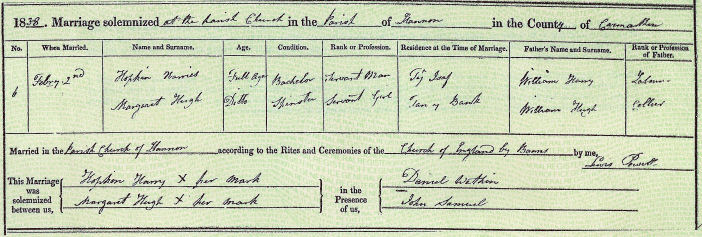 1838. Marriage solemnized at the Parish Church in the Parish of Llannon in the County of Carmarthen
No. When Married. Name and Surname. Age. Condition. Rank or Profession. Residence at the Time of Marriage. Father's Name and Surname. Rank or Profession of Father.
6 Febry 2nd Hopkin Harries Full Age Bachelor Servant Man Ty Isaf William Harry Labourer
Margaret Hugh Ditto Spinster Servant Girl Tan y Bank William Hugh Collier
Married in the Parish Church of Llannon according to the Rites and Ceremonies of the Church of England by Banns by me,
Powell
This Marriage was solemnized between us, Hopkin Harry X per mark in the Presence of us, Daniel Watkin
Margaret Hugh X per mark John Samuel